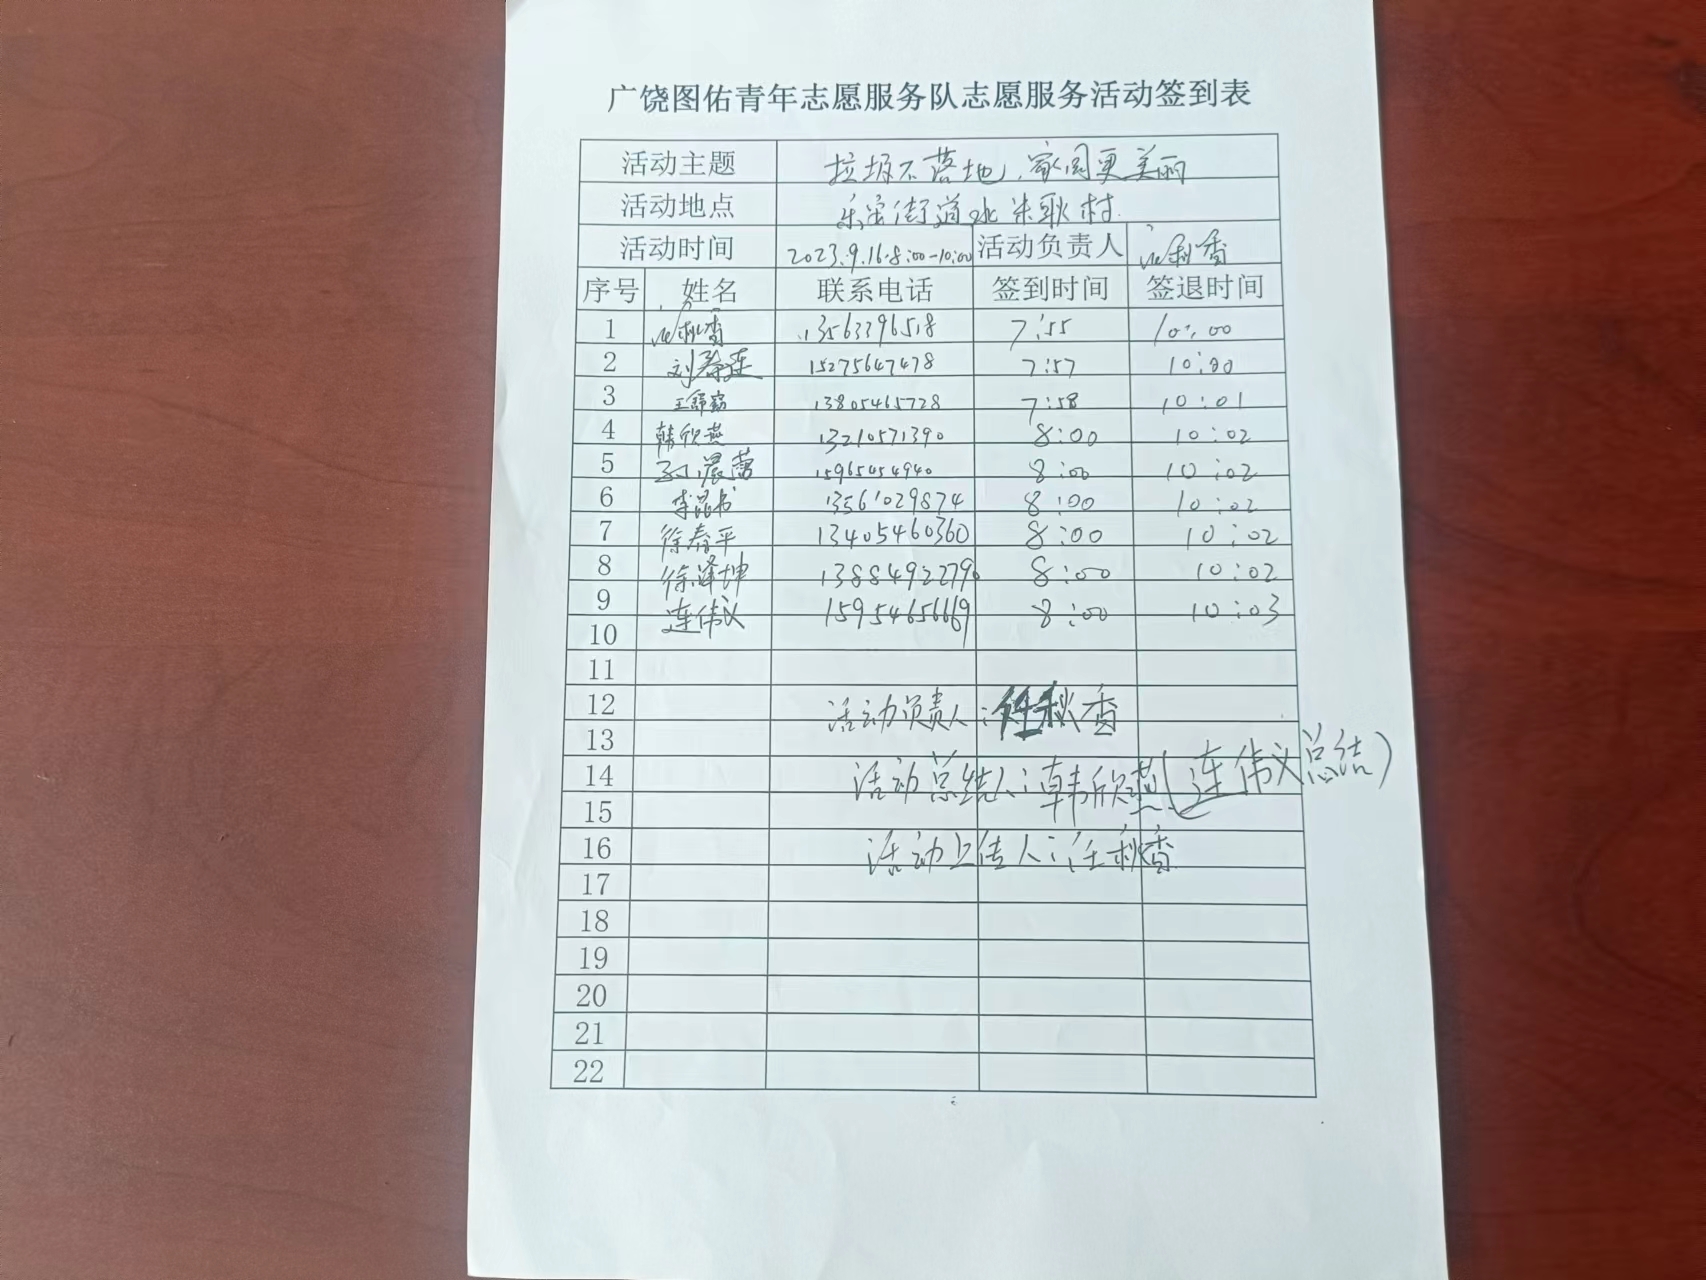 广饶图佑青年志愿服务队志愿服务活动签到表
活动主题 垃圾不落地，家园更美丽
活动地点 乐安街道 耿村
活动时间 2023.9.16.8:00-10:00 活动负责人 任秋香
序号 姓名 联系电话 签到时间 签退时间
1 任秋香 13563396518 7:55 10:00
2 刘春莲 15275647478 7:57 10:00
3 13805465728 7:58 10:01
4 韩欣燕 13210571390 8:00 10:02
5 15965454940 8:00 10:02
6 李昆书 13561029874 8:00 10:02
7 徐春平 13405460360 8:00 10:02
8 徐泽坤 13884922790 8:00 10:02
9 连伟义 15954656669 8:00 10:03
10
11
12 活动负责人：任秋香
13
14 活动总结人：韩欣燕（连伟义总结）
15
16 活动上传人：任秋香
17
18
19
20
21
22